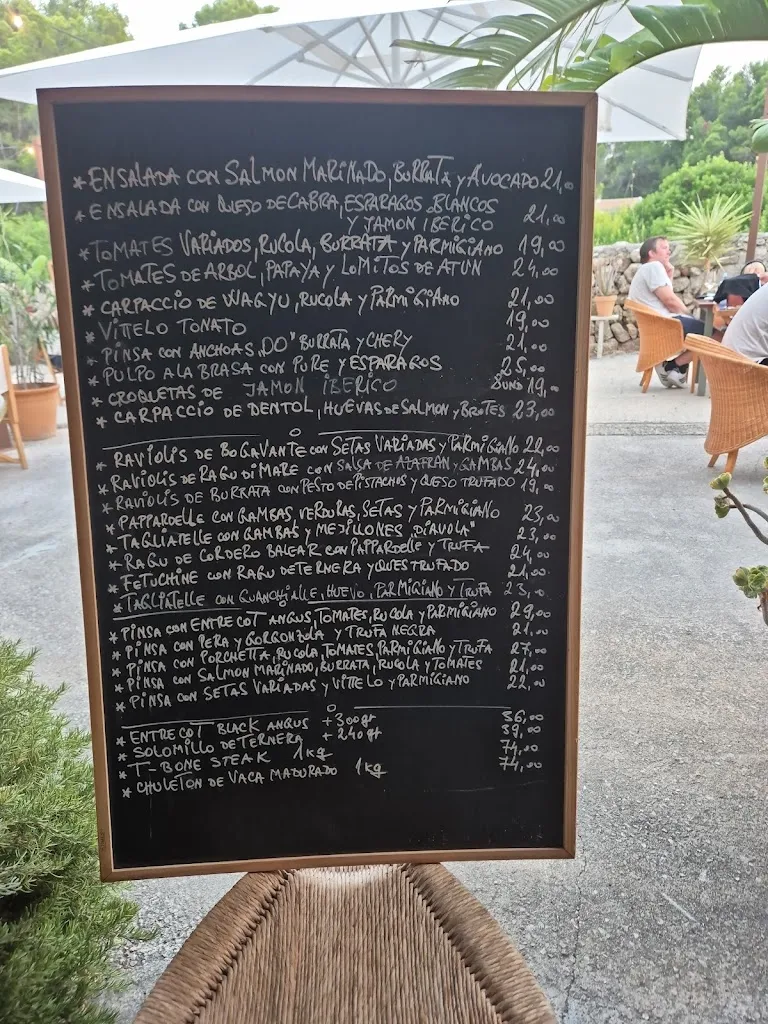 * ENSALADA CON SALMON MARINADO, BURRATA y AVOCADO 21,00
* ENSALADA CON QUESO DE CABRA, ESPARAGOS BLANCOS
Y JAMON IBERICO 21,00
* TOMATES VARIADOS, RUCOLA, BURRATA y PARMIGIANO 19,00
* TOMATES DE ARBOL, PAPAYA y LOMITOS DE ATUN 24,00
* CARPACCIO DE WAGYU, RUCOLA y PARMIGIANO 21,00
* VITTELO TONATO 19,00
* PINSA CON ANCHOAS "DO" BURRATA y CHERY 21,00
* PULPO A LA BRASA CON PURE y ESPARAGOS 25,00
* CROQUETAS DE JAMON IBERICO 8UND 19,00
* CARPACCIO DE DENTOL, HUEVAS DE SALMON y BROTES 23,00
* RAVIOLIS DE BOGAVANTE CON SETAS VARIADAS y PARMIGIANO 22,00
* RAVIOLIS DE RAGU DI MARE CON SALSA DE AZAFRAN y GAMBAS 24,00
* RAVIOLIS DE BURRATA CON PESTO DE PISTACHOS y QUESO TRUFADO 19,00
* PAPPARDELLE CON GAMBAS, VERDURAS, SETAS y PARMIGIANO 23,00
* TAGLIATELLE CON GAMBAS y MEJILLONES "DIAVOLA" 23,00
* RAGU DE CORDERO BALEAR CON PAPPARDELLE y TRUFA 24,00
* FETUCHINE CON RAGU DE TERNERA y QUESO TRUFADO 21,00
* TAGLIATELLE CON GUANCHIALLE, HUEVO, PARMIGIANO y TRUFA 23,00
* PINSA CON ENTRECOT ANGUS, TOMATES, RUCOLA y PARMIGIANO 29,00
* PINSA CON PERA y GORGONZOLA y TRUFA NEGRA 21,00
* PINSA CON PORCHETTA, RUCOLA, TOMATES, PARMIGIANO y TRUFA 27,00
* PINSA CON SALMON MARINADO, BURRATA, RUCOLA y TOMATES 21,00
* PINSA CON SETAS VARIADAS y VITTELO y PARMIGIANO 22,00
* ENTRECOT BLACK ANGUS +300gr 36,00
* SOLOMILLO DE TERNERA +240gr 39,00
* T-BONE STEAK 1kg 74,00
* CHULETON DE VACA MADURADO 1kg 74,00